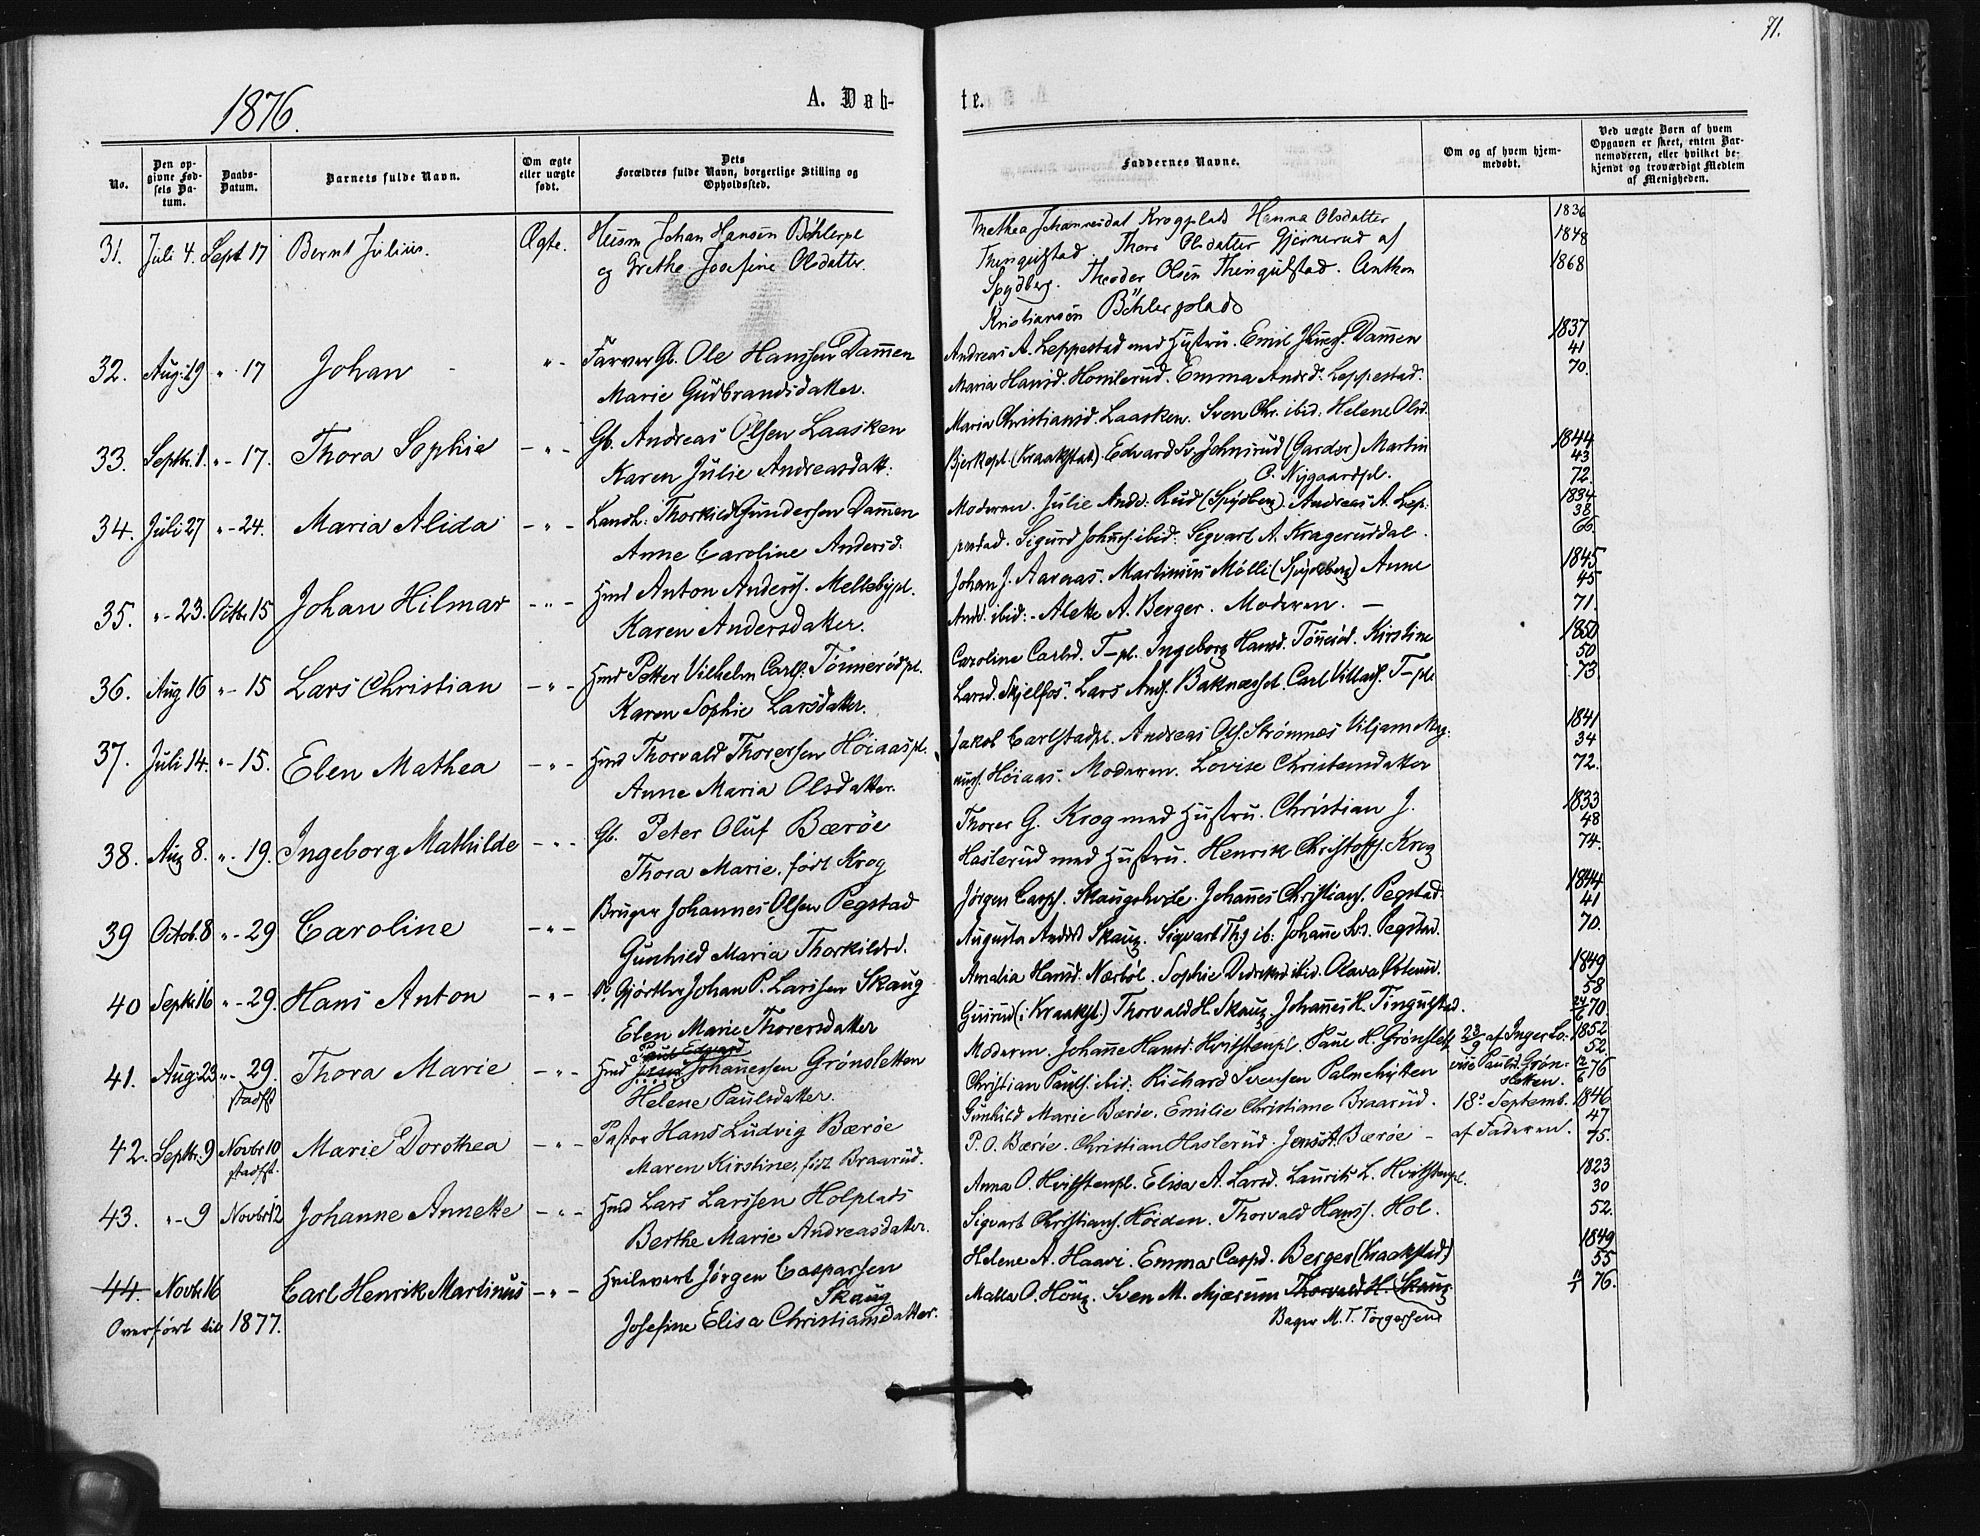 71.
1876.
A. Døb-
te.
No.
Den op-
givne Fød-
sels Da-
tum.
Daabs-
Datum.
Barnets fulde Navn.
Om ægte
eller uægte
født.
Dets
Forældres fulde Navn, borgerlige Stilling og
Opholdssted.
Faddernes Navne.
Om og af hvem hjem-
medøbt.
Ved uægte Børn af hvem
Opgaven er skeet, enten Bar-
nemoderen, eller hvilket be-
kjendt og troværdigt Medlem
af Menigheden.
31. Juli 4. Sept 17 Bernt Julius. Ægte. Husm Johan Hansen Böhlerpl
og Grethe Josefine Olsdatter.
Methea Johannesdat Krogplads Hanna Olsdatter
Thingulstad. Thore Olsdatter Gjernerud af
Spydberg. Theodor Olsen Thingulstad. Anthon
Kristiansen Böhlerplads
1836
1848
1868
32. Aug: 19 "- 17 Johan "- Farver Gb. Ole Hansen Dammen
Marie Gudbrandsdatter.
Andreas A. Leppestad med Hustru. Emil Dammen
Maria Hansd. Homlerud. Emma Andrd. Leppestad.
1837
41
70.
33. Septbr. 1. "- 17. Thora Sophie -"- Gb. Andreas Olsen Laasken
Karen Julie Andreasdatt:
Maria Christiansd. Laasken. Sven Chr. ibid. Helene Olsd.
Bjerkepl. (Kraakstad) Edvard Sv. (Garder) Martin
O. Nygaardpl.
1844
43
72.
34. Juli 27 "- 24. Maria Alida -"- Landh. Thorkild Gundersen Dammen
Anne Caroline Andersd.
Moderen. Julie Andd. Rud (Spydberg). Andreas A. Lep-
pestad. Sigurd Johns. ibid: Sigvart A. Krageruddal.
1834
38
66.
35. "- 23. Octbr. 15 Johan Hilmar -"- Hmd Anton Anders. Mellebypl.
Karen Andersdatter.
Johan J. Aaraas. Martinius Mölli (Spydeberg) Anne
Andd. ibid: - Alette A. Berger. Moderen. -
1845
45
71.
36. Aug 16 "- 15 Lars Christian -"- Hmd Petter Vilhelm Carls. Tönnerödpl.
Karen Sophie Larsdatter.
Caroline Carlsd. T-pl. Ingeborg Hansd. Kirstine
Larsd. Skjelfos. Lars Ands. Carl Villads. T-pl.
1850
50
73.
37. Juli 14. "- 15. Elen Mathea -"- Hmd Thorvald Thorersen Höiaaspl.
Anne Maria Olsdatter.
Jakob Carlstadpl. Andreas Ols. Strömnæs Viljam Mag-
nus. Höiaas. Moderen. Lovise Christensdatter
1841
34
72.
38. Aug 8. "- 19. Ingeborg Mathilde -"- Gb. Peter Oluf Bærøe
Thora Marie, født Krog
Thorer G. Krog med Hustru. Christian J.
Haslerud med Hustru. Henrik Christoffs. Krog
1833
48
74.
39 Octob. 8 "- 29 Caroline -"- Bruger Johannes Olsen Pegstad
Gunhild Maria Thorkildsd.
Jørgen Casps. Skaugshvile. Johannes Christians. Pegstad.
Augusta Andrd Skaug. Sigvart Th.s ib: Johanne Pegstad.
1844
41
70.
40 Septbr. 16 "- 29. Hans Anton -"- Gjörtler Johan P. Larssen Skaug
Elen Marie Thorersdatter
Amalia Hansd. Nærböl. Sophie ibid. Olava
(i Kraakst.) Thorvald H. Skaug. Johannes H. Tingulstad.
1849
58
24/6 70.
41. Aug: 23 "- 29. Thora Marie -"- Hmd Paul Edvard Johannessen Grønsletten
stadf.
Helene Paulsdatter.
Moderen. Johanne Hansd. Hvitstenpl. Paul H. Grønslett.
Christian Pauls. ibid. Richard Svensen
23/9 af Inger Lo-
vise Paulsd. Grøn-
sletten.
1852
52
12/6 76
42. Septbr. 9 Novbr 10 Marie Dorothea -"- Pastor Hans Ludvig Bærøe
stadf.
Maren Kirstine, født Braarud.
Gunhild Marie Bærøe. Emilie Christiane Braarud.
P. O. Bærøe. Christian Haslerud. Jens A. Bærøe -
18de Septemb.
af Faderen.
1846
47
75.
43. "- 9 Novbr 12 Johanne Annette -"- Hmd Lars Larssen Holplads
Berthe Marie Andreasdatter.
Anna O. Hvitstenpl. Elisa A. Larsd. Laurits L. Hvitstenpl.
Sigvart Christians. Höiden. Thorvald Hans. Hol.
1823
30
52.
44. Novbr 16 Carl Henrik Martinus -"- Hvilevert Jörgen Casparsen
Skaug
Overført til 1877.
Josefine Elisa Christiansdatter.
Helene A. Haavi. Emma Caspd. Berger (Kraakstad)
Matta O. Haug. Sven M. Mjærum Thorvald H. Skaug
Bager M. T. Torgersen
1849
55
76.